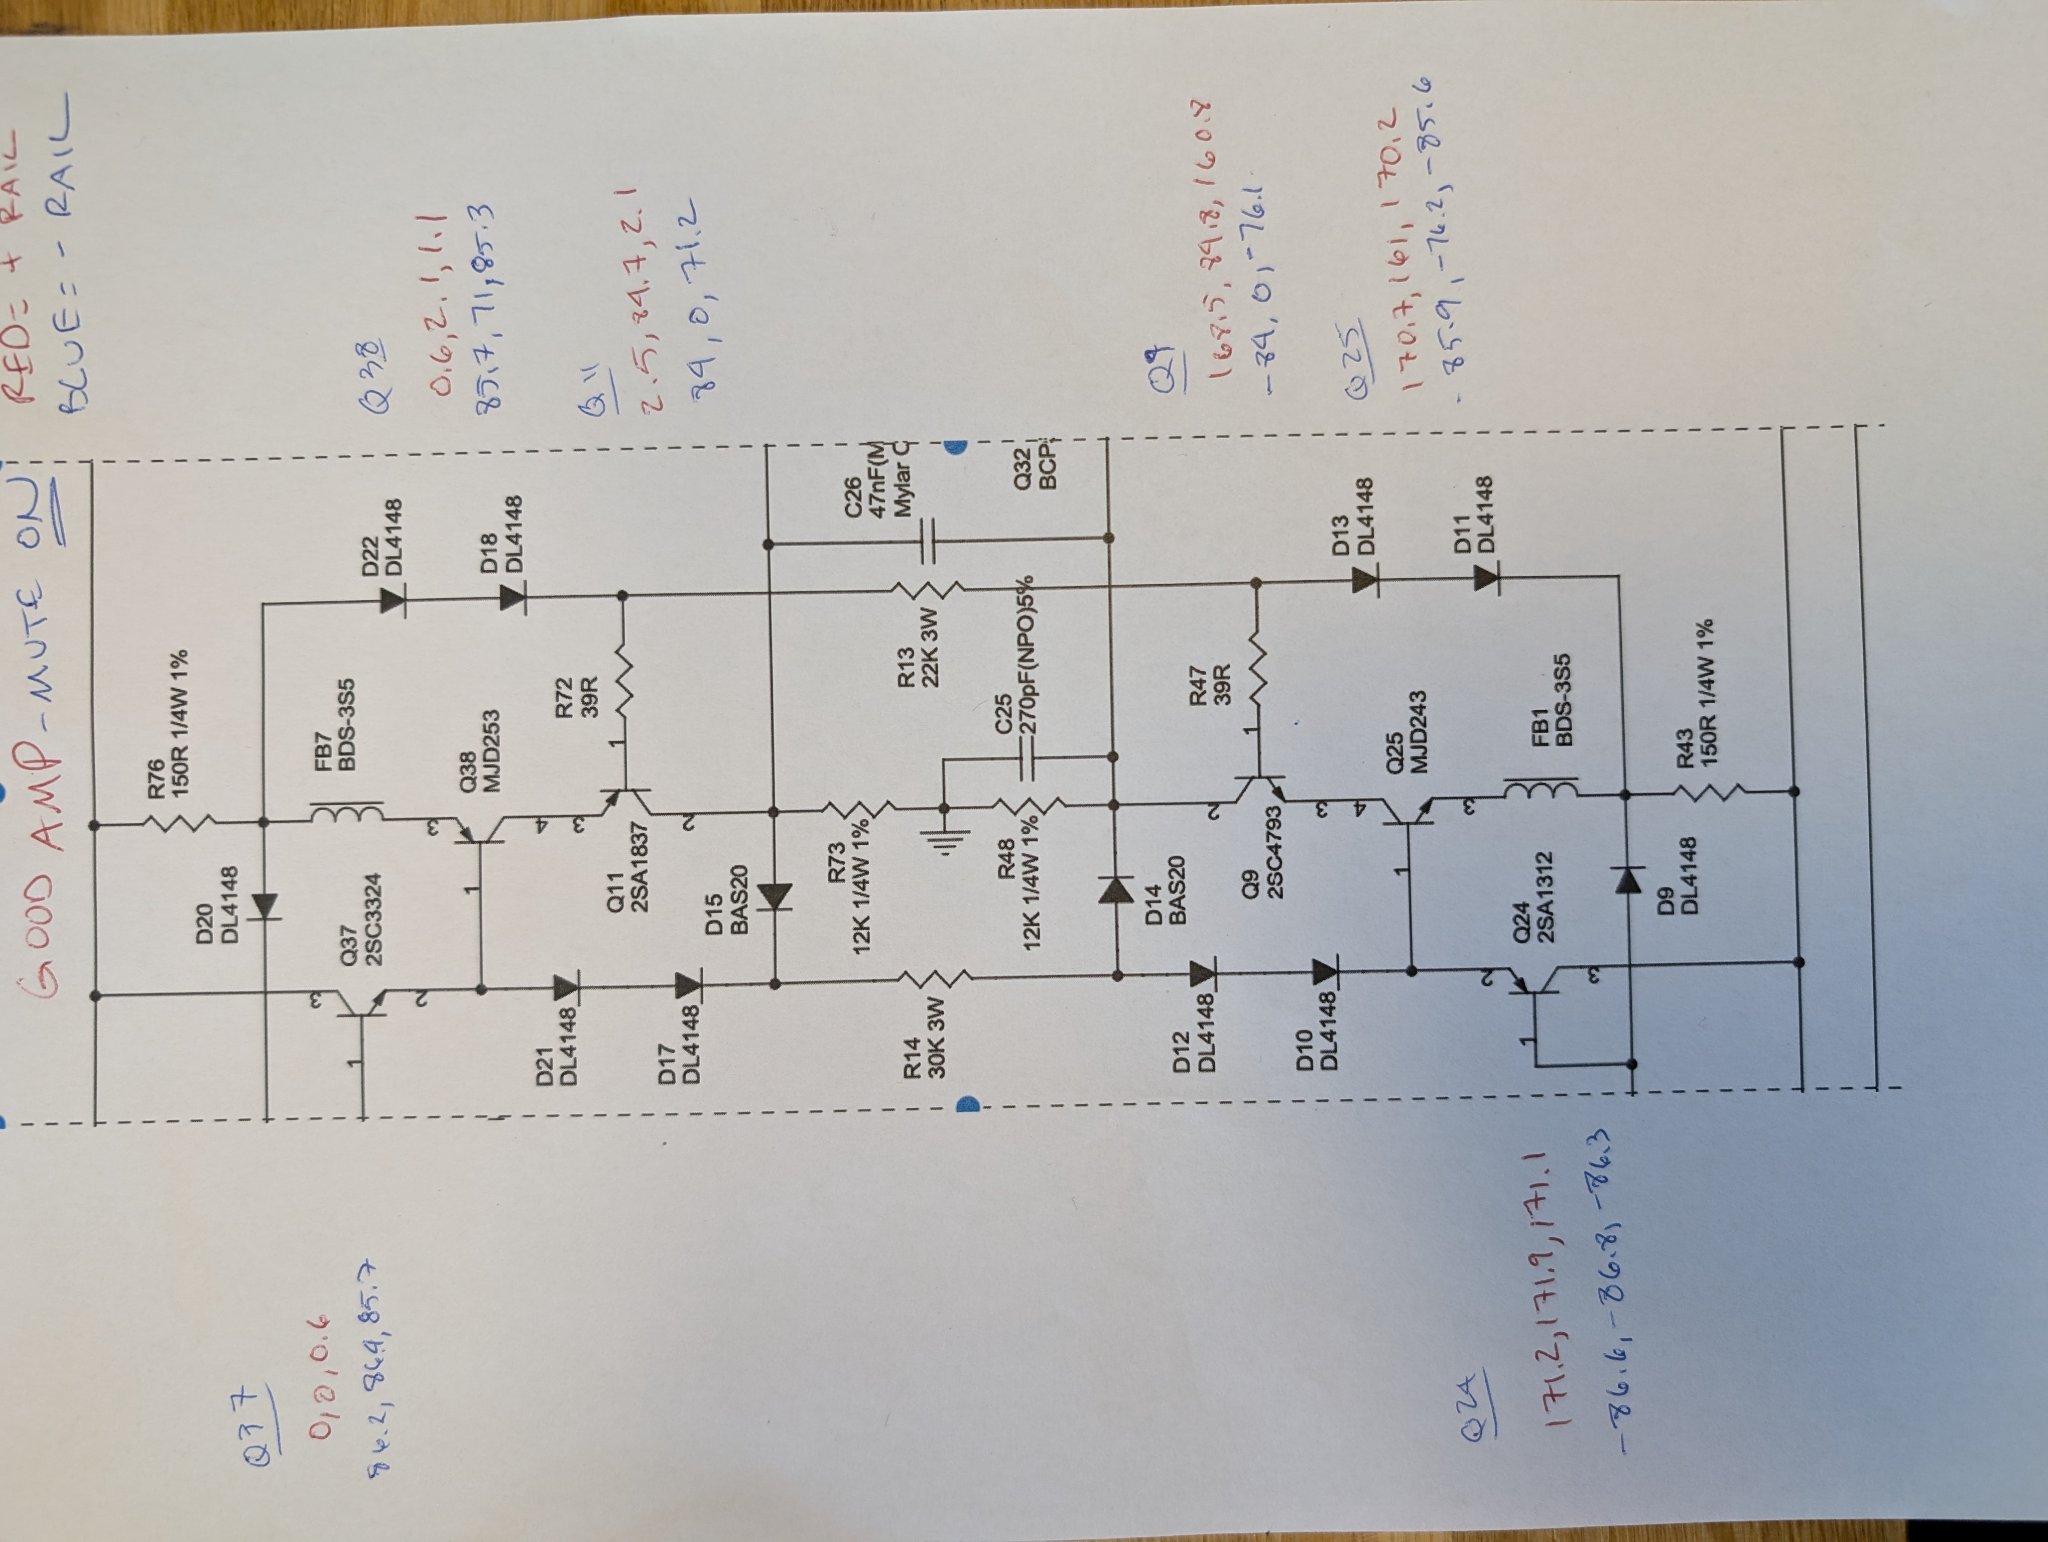 GOOD AMP - MUTE ON
RED = + RAIL
BLUE = - RAIL
R76
150R 1/4W 1%
D20
DL4148
FB7
BDS-3S5
D22
DL4148
Q37
2SC3324
3
1
2
Q38
MJD253
3
1
4
D18
DL4148
D21
DL4148
Q11
2SA1837
3
1
2
R72
39R
D17
DL4148
D15
BAS20
R73
12K 1/4W 1%
R13
22K 3W
C26
47nF(M
Mylar C
R14
30K 3W
R48
12K 1/4W 1%
C25
270pF(NPO)5%
Q32
BCP
D12
DL4148
D14
BAS20
Q9
2SC4793
2
1
3
R47
39R
D10
DL4148
Q25
MJD243
4
1
3
D13
DL4148
Q24
2SA1312
2
1
3
FB1
BDS-3S5
D11
DL4148
D9
DL4148
R43
150R 1/4W 1%
Q37
0,0,0.6
86.2, 86.9, 85.7
Q38
0.6, 2.1, 1.1
85.7, 71, 85.3
Q11
2.5, 84.7, 2.1
84, 0, 71.2
Q9
168.5, 84.8, 160.8
-84, 0, -76.1
Q25
170.7, 161, 170.2
-85.9, -76.2, -85.6
Q24
171.2, 171.9, 171.1
-86.6, -86.8, -86.3